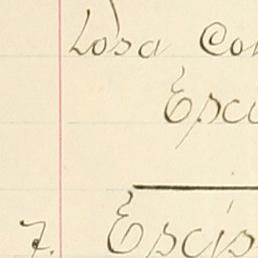 Losa Con
Esce
7. Escis